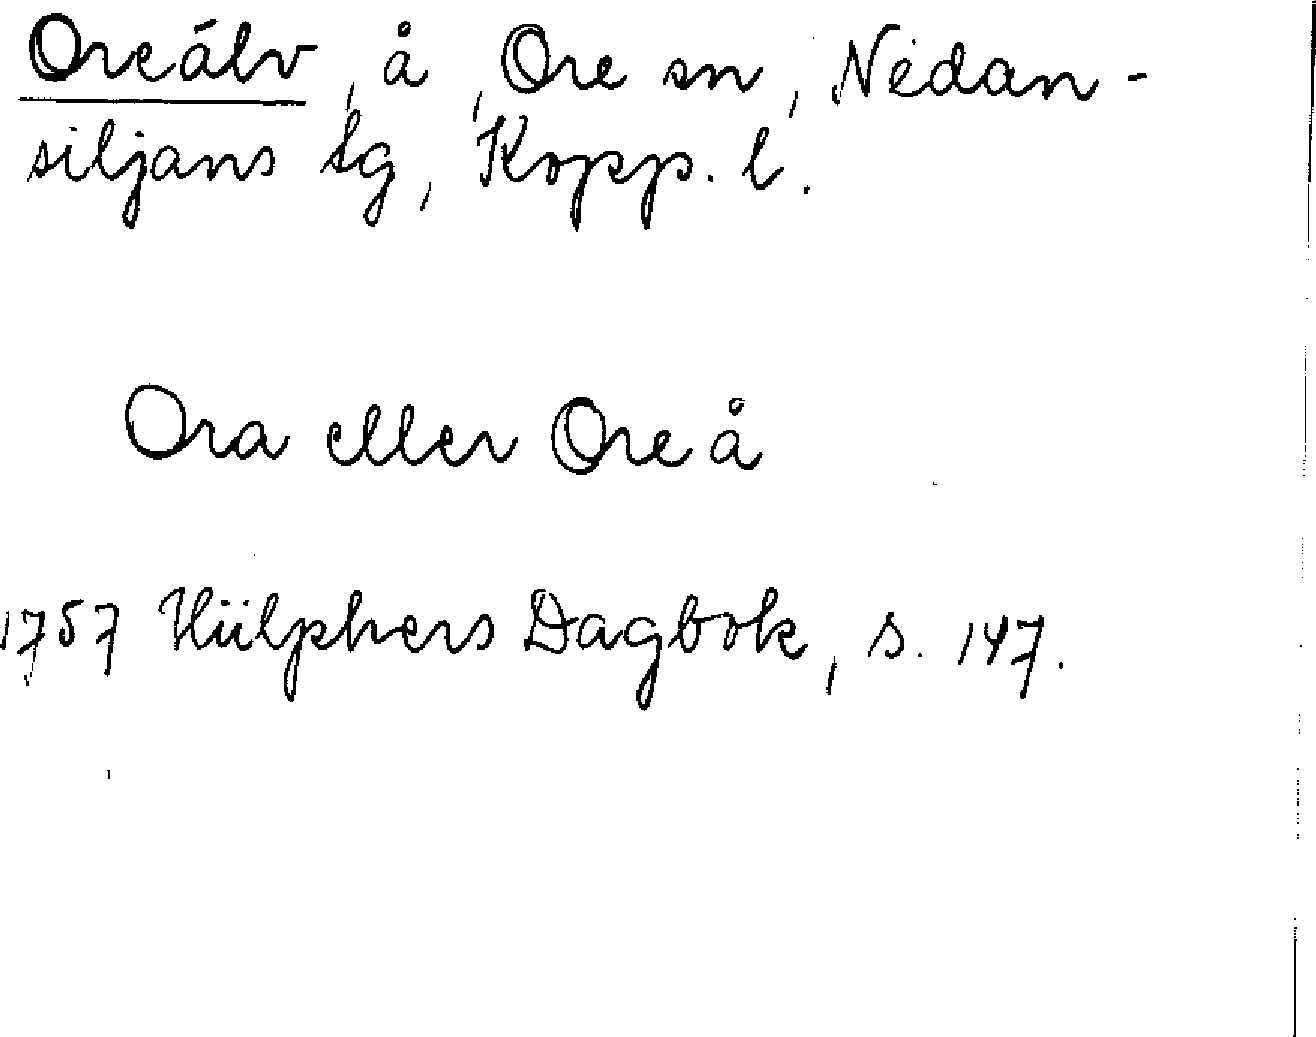 Oreälv, å, Ore sn, Nedan-
siljans tg, Kopp. l.
Ora eller Ore å
1757 Hülphers Dagbok, s. 147.